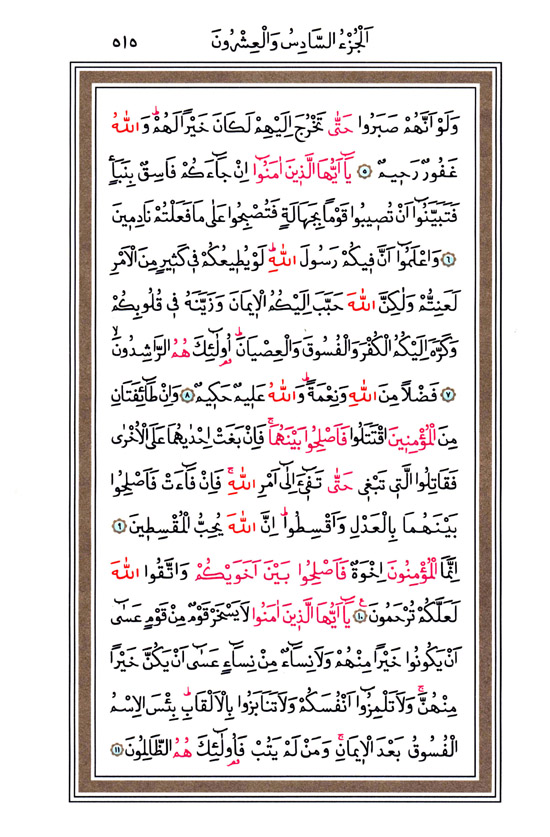 اَلْجُزْءُ السَّادِسُ وَالْعِشْرُونَ ٥١٥
وَلَوْ اَنَّهُمْ صَبَرُوا حَتّٰى تَخْرُجَ اِلَيْهِمْ لَكَانَ خَيْرًا لَهُمْۜ وَاللّٰهُ
غَفُورٌ رَحِيمٌ ﴿٥﴾ يَٓا اَيُّهَا الَّذِينَ اٰمَنُٓوا اِنْ جَٓاءَكُمْ فَاسِقٌ بِنَبَأٍ
فَتَبَيَّنُٓوا اَنْ تُصِيبُوا قَوْمًا بِجَهَالَةٍ فَتُصْبِحُوا عَلٰى مَا فَعَلْتُمْ نَادِمِينَ
﴿٦﴾ وَاعْلَمُٓوا اَنَّ فِيكُمْ رَسُولَ اللّٰهِۜ لَوْ يُطِيعُكُمْ فِي كَثِيرٍ مِنَ الْاَمْرِ
لَعَنِتُّمْ وَلٰكِنَّ اللّٰهَ حَبَّبَ اِلَيْكُمُ الْاِيمَانَ وَزَيَّنَهُ فِي قُلُوبِكُمْ
وَكَرَّهَ اِلَيْكُمُ الْكُفْرَ وَالْفُسُوقَ وَالْعِصْيَانَۜ اُو۬لٰٓئِكَ هُمُ الرَّاشِدُونَۙ
﴿٧﴾ فَضْلًا مِنَ اللّٰهِ وَنِعْمَةًۜ وَاللّٰهُ عَلِيمٌ حَكِيمٌ ﴿٨﴾ وَاِنْ طَٓائِفَتَانِ
مِنَ الْمُؤْمِنِينَ اقْتَتَلُوا فَاَصْلِحُوا بَيْنَهُمَاۚ فَاِنْ بَغَتْ اِحْدٰيهُمَا عَلَى الْاُخْرٰى
فَقَاتِلُوا الَّتِي تَبْغِي حَتّٰى تَفِٓيءَ اِلٰٓى اَمْرِ اللّٰهِۚ فَاِنْ فَٓاءَتْ فَاَصْلِحُوا
بَيْنَهُمَا بِالْعَدْلِ وَاَقْسِطُواۜ اِنَّ اللّٰهَ يُحِبُّ الْمُقْسِطِينَ ﴿٩﴾
اِنَّمَا الْمُؤْمِنُونَ اِخْوَةٌ فَاَصْلِحُوا بَيْنَ اَخَوَيْكُمْ وَاتَّقُوا اللّٰهَ
لَعَلَّكُمْ تُرْحَمُونَ ﴿١٠﴾ يَٓا اَيُّهَا الَّذِينَ اٰمَنُوا لَا يَسْخَرْ قَوْمٌ مِنْ قَوْمٍ عَسٰٓى
اَنْ يَكُونُوا خَيْرًا مِنْهُمْ وَلَا نِسَٓاءٌ مِنْ نِسَٓاءٍ عَسٰٓى اَنْ يَكُنَّ خَيْرًا
مِنْهُنَّۚ وَلَا تَلْمِزُٓوا اَنْفُسَكُمْ وَلَا تَنَابَزُوا بِالْاَلْقَابِۜ بِئْسَ الِاسْمُ
الْفُسُوقُ بَعْدَ الْاِيمَانِۚ وَمَنْ لَمْ يَتُبْ فَاُو۬لٰٓئِكَ هُمُ الظَّالِمُونَ ﴿١١﴾